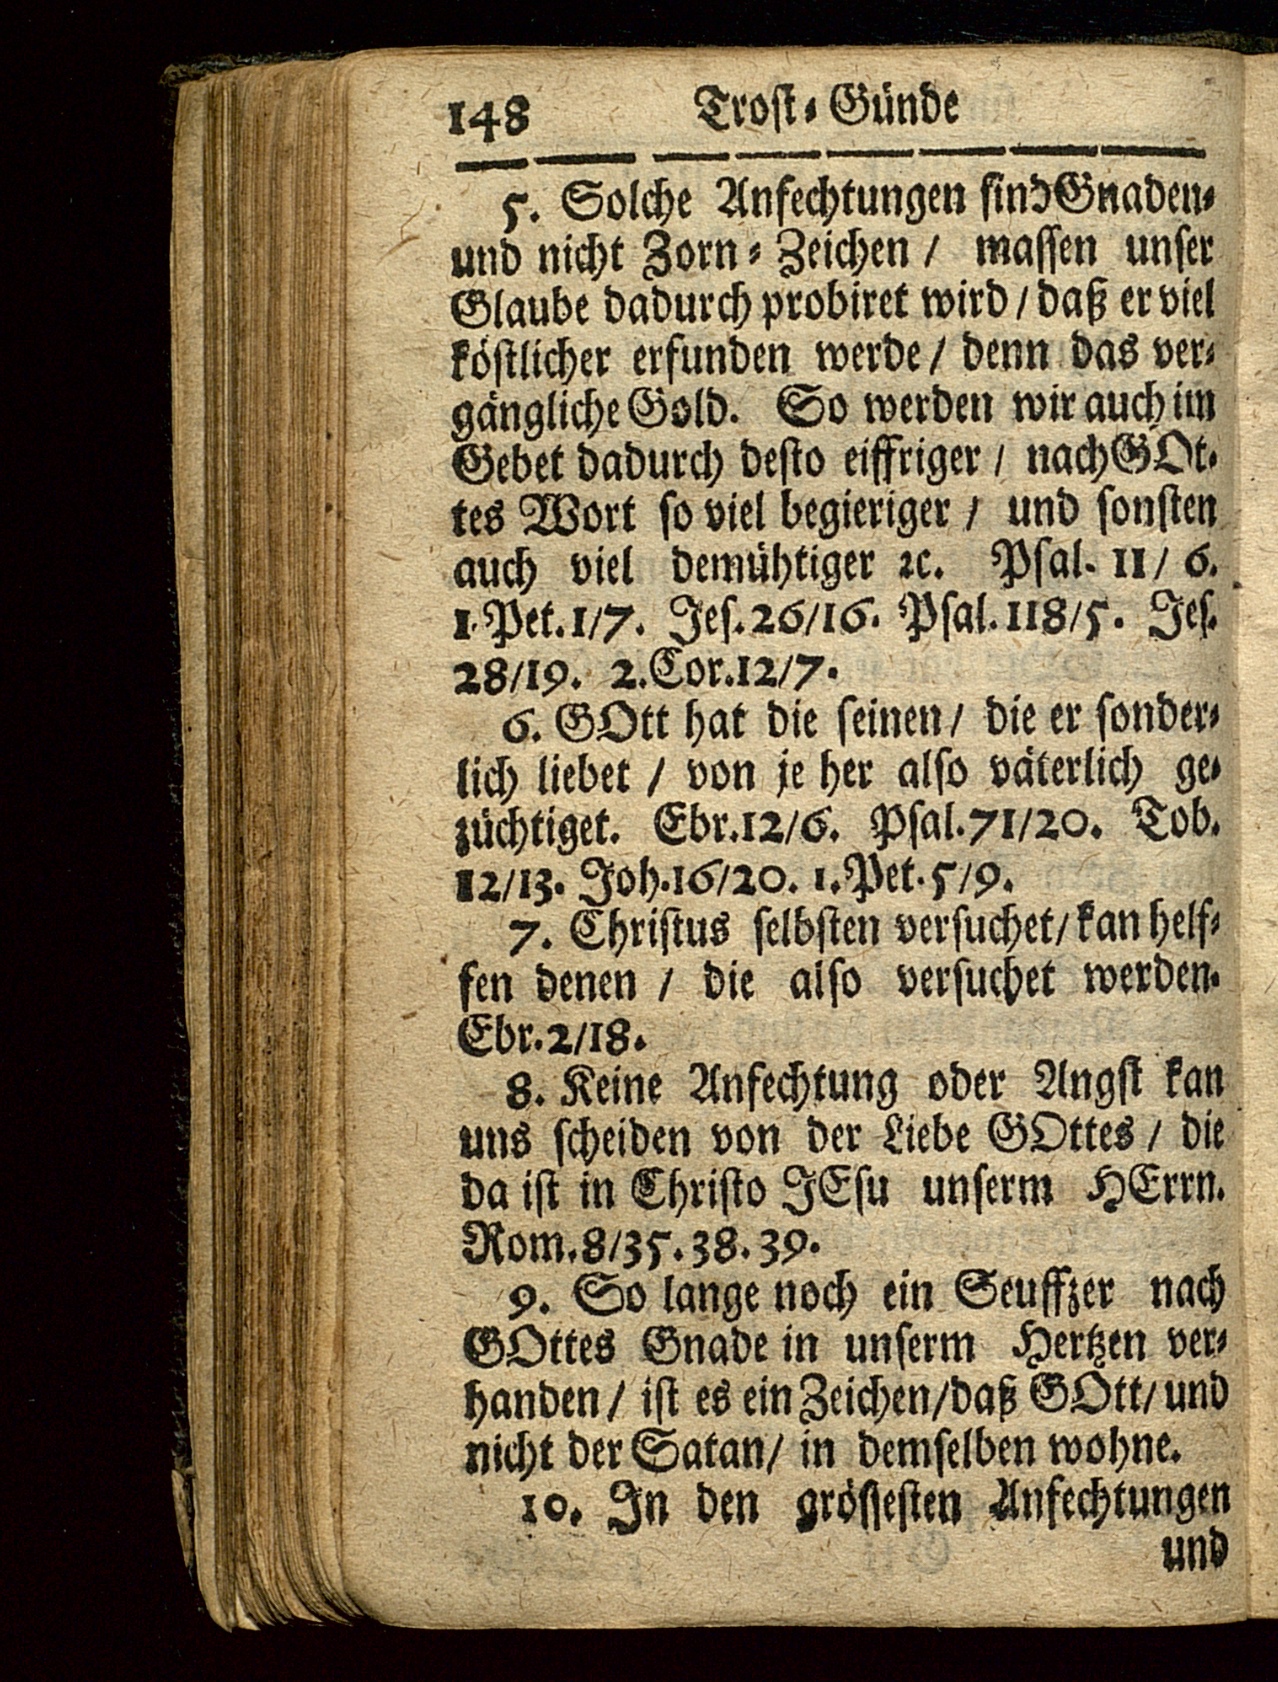 148 Trost-Günde
5. Solche Anfechtungen sind Gnaden-
und nicht Zorn-Zeichen / massen unser
Glaube dadurch probiret wird / daß er viel
köstlicher erfunden werde / denn das ver-
gängliche Gold. So werden wir auch im
Gebet dadurch desto eiffriger / nach GOt-
tes Wort so viel begieriger / und sonsten
auch viel demühtiger ꝛc. Psal. 11/6.
1. Pet. 1/7. Jes. 26/16. Psal. 118/5. Jes.
28/19. 2. Cor. 12/7.
6. GOtt hat die seinen / die er sonder-
lich liebet / von je her also väterlich ge-
züchtiget. Ebr. 12/6. Psal. 71/20. Tob.
12/13. Joh. 16/20. 1. Pet. 5/9.
7. Christus selbsten versuchet / kan helf-
fen denen / die also versuchet werden.
Ebr. 2/18.
8. Keine Anfechtung oder Angst kan
uns scheiden von der Liebe GOttes / die
da ist in Christo JEsu unserm HErrn.
Rom. 8/35. 38. 39.
9. So lange noch ein Seuffzer nach
GOttes Gnade in unserm Hertzen ver-
handen / ist es ein Zeichen / daß GOtt / und
nicht der Satan / in demselben wohne.
10. In den grössesten Anfechtungen
und